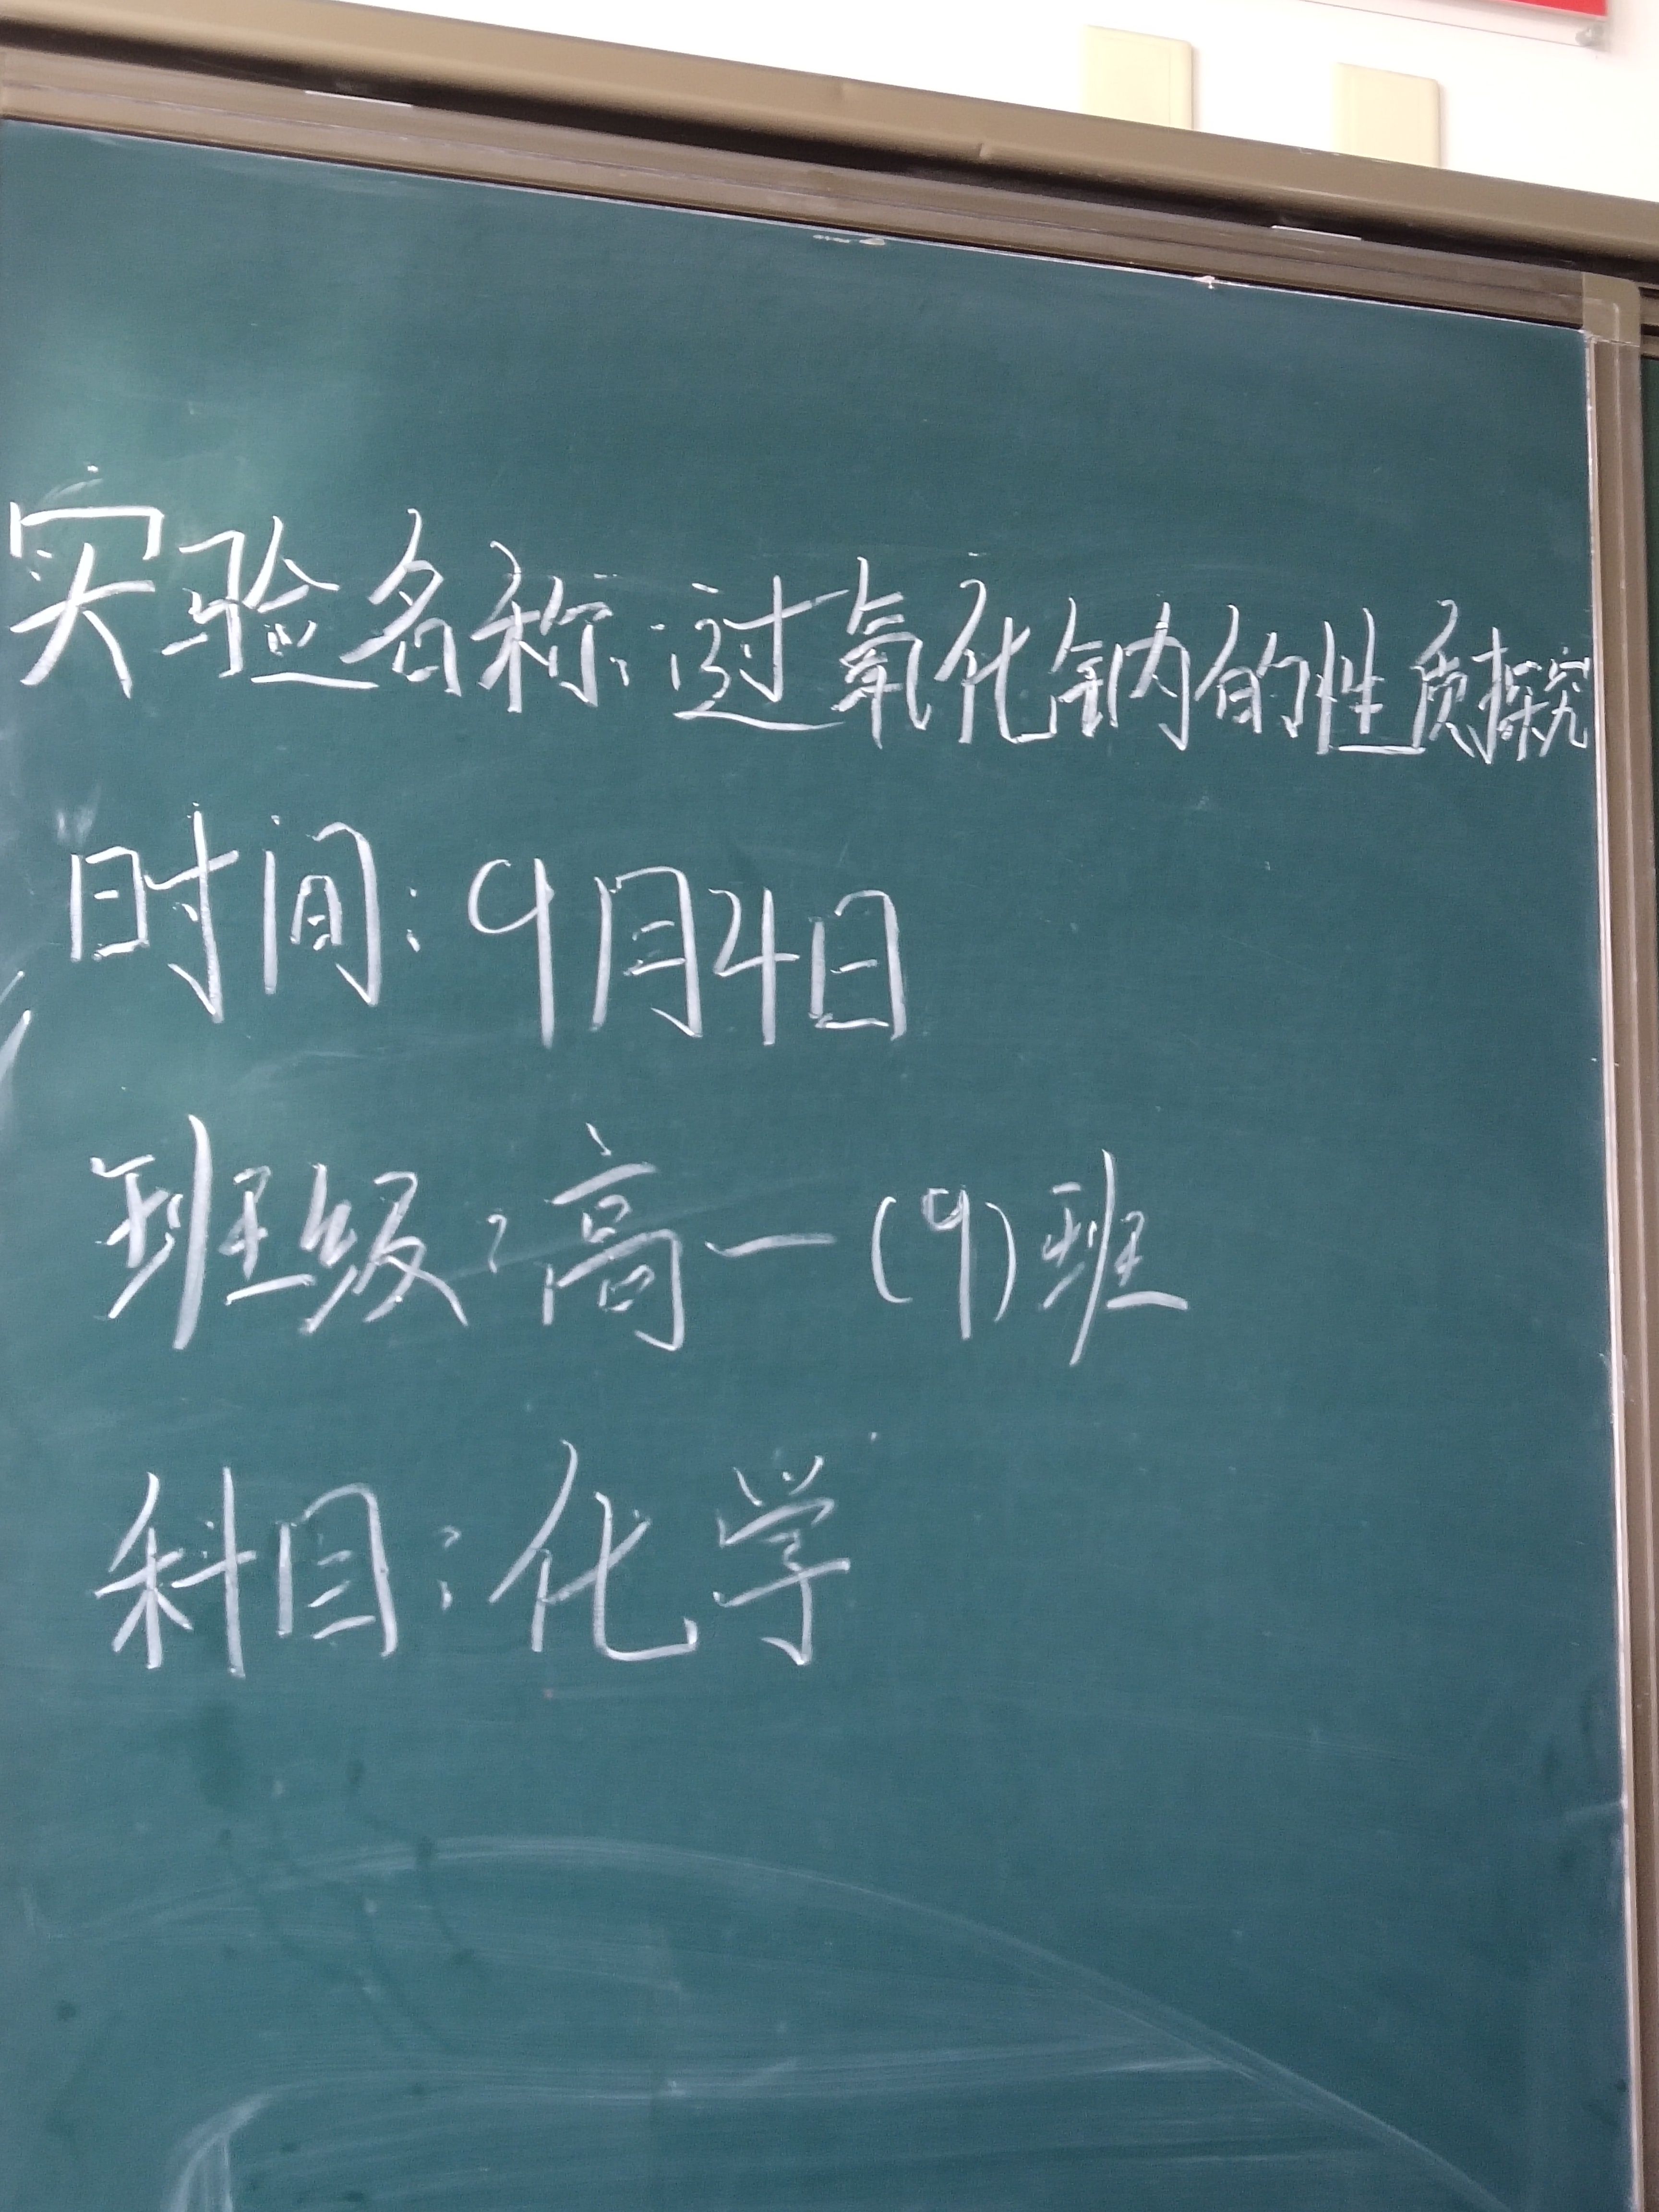 实验名称:过氧化钠的性质探究
时间:9月4日
班级:高一(9)班
科目:化学